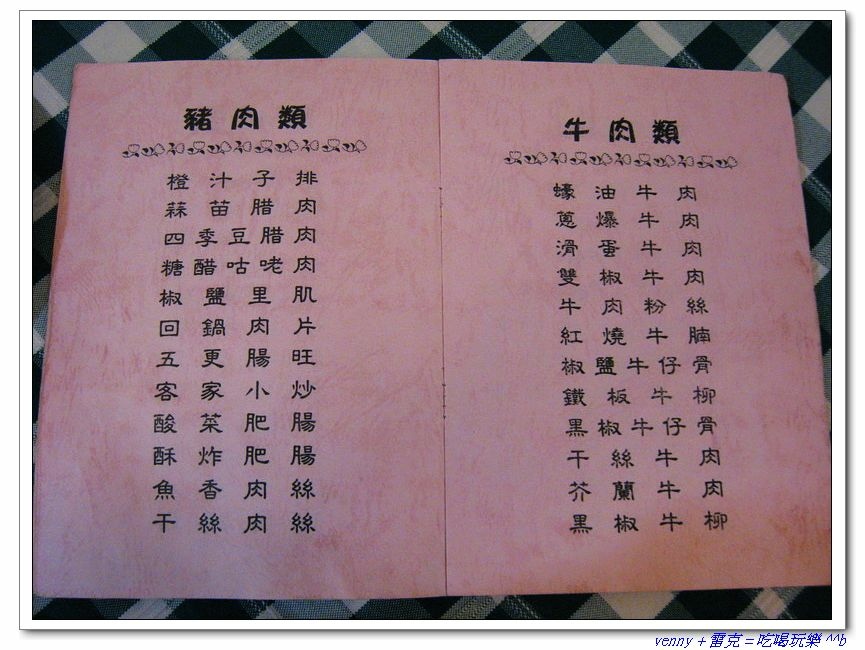 豬肉類
橙汁子排
蒜苗腊肉
四季豆腊肉
糖醋咕咾肉
椒鹽里肌
回鍋肉片
五更腸旺
客家小炒
酸菜肥腸
酥炸肥腸
魚香肉絲
干絲肉絲
牛肉類
蠔油牛肉
蔥爆牛肉
滑蛋牛肉
雙椒牛肉
牛肉粉絲
紅燒牛腩
椒鹽牛仔骨
鐵板牛柳
黑椒牛仔骨
干絲牛肉
芥蘭牛肉
黑椒牛柳
venny + 雷克 = 吃喝玩樂 ^^b